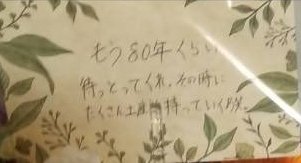 もう80年くらい
待っとってくれ。その時に
たくさん土産持っていく